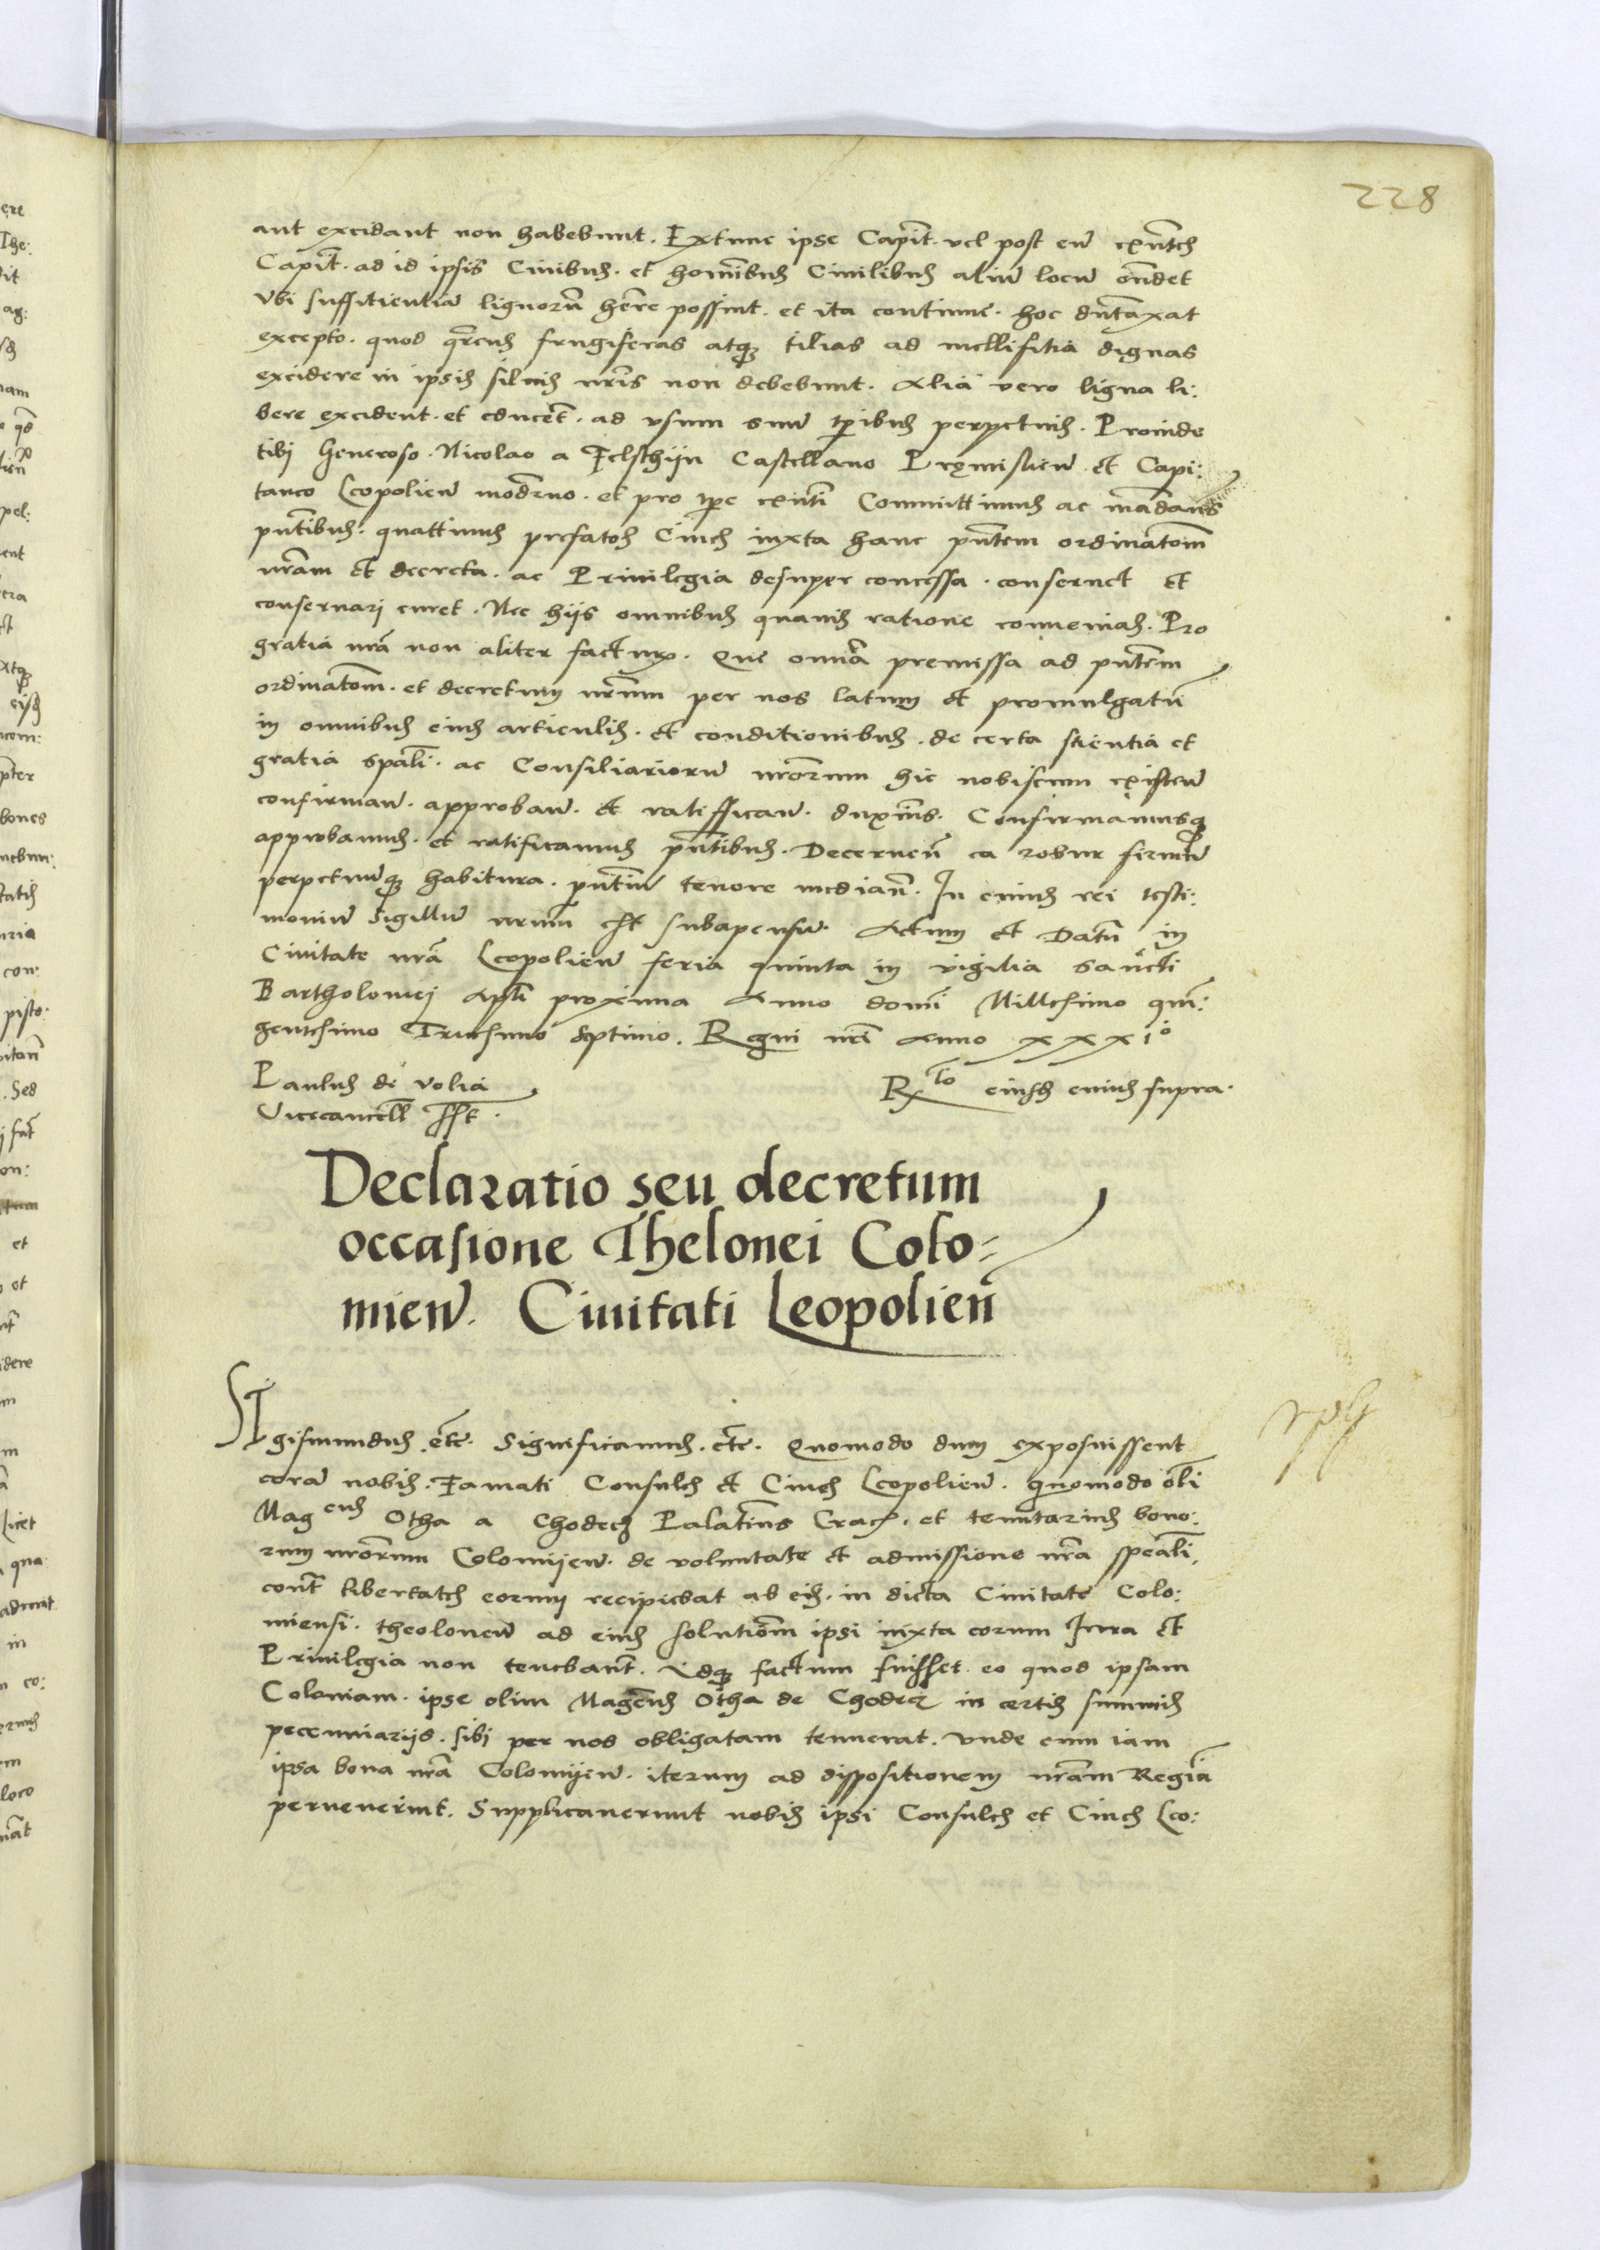 228
aut excidant non habebunt. Extunc ipse Capit. vel post eu exntes
Capit. ad id ipsis Civibus. et hominibus Civilibus aliu locu ondet
Vbi suffitientia lignoru here possint. et ita continue. hoc dntaxat
excepto. quod qrcus frugiferas atq tilias ad mellifitia dignas
excidere in ipsis siluis nris non debebunt. Alia vero ligna li:
bere excident. et educet. ad vsum suu tpibus perpetuis. Proinde
tibi Generoso. Nicolao a Felsthijn Castellano Premislien et Capi:
taneo Leopolien moderno. et pro tpe exnti Committimus ac mandams
pntibus. quattinus prefatos Cives iuxta hanc pntem ordinatom
nram et decreta. ac Priuilegia desuper concessa. conseruet et
conseruari curet. Nec hijs omnibus quauis ratione conuenias. Pro
gratia nra non aliter factur. Que omnia premissa ad pntem
ordinatom. et decretum nrum per nos latum et promulgatu
in omnibus eius articulis. et conditionibus. de certa scientia et
gratia spali. ac Consiliarioru nrorum hic nobiscum existen
confirman. approban. et ratifican. duxims. Confirmamusq
approbamus. et ratificamus pntibus. Decernen ea robur firmu
perpetuuq habitura. pntiu tenore median. In cuius rei testi:
moniu Sigillu nrum est subapensu. Actum et Datu in
Ciuitate nra Leopolien feria quinta in vigilia sancti
Bartholomei Apli proxima Anno domi Millesimo quin:
gentesimo Tricesimo septimo. Regni nri Anno xxxi°
Paulus de volia
Vicecancell sst.
R^to eiusd cuius supra.
Declaratio seu decretum
occasione Thelonei Colo=
mien. Ciuitati Leopolien
SIgismundus etc. Significamus. etc. Quomodo dum exposuissent
cora nobis. Famati Consules et Ciues Leopolien. quomodo oli
Mag cus Otha a Chodecz Palatins Crac. et tenutarius bono:
rum nrorum Colomijen. de voluntate et admissione nra speali
cont libertates eorum recipiebat ab eis. in dicta Ciuitate Colo:
miensi. theoloneu ad cuius solutiom ipsi iuxta eorum Iura et
Priuilegia non tenebant. Idq factum fuisset eo quod ipsam
Colomiam. ipse olim Magcus Otha de Chodecz in certis summis
pecuniarijs. sibi per nos obligatam tenuerat. Vnde cum iam
ipsa bona nra Colomijen. iterum ad dispositionem nram Regia
peruenerint. Supplicauerunt nobis ipsi Consules et Ciues Leo: